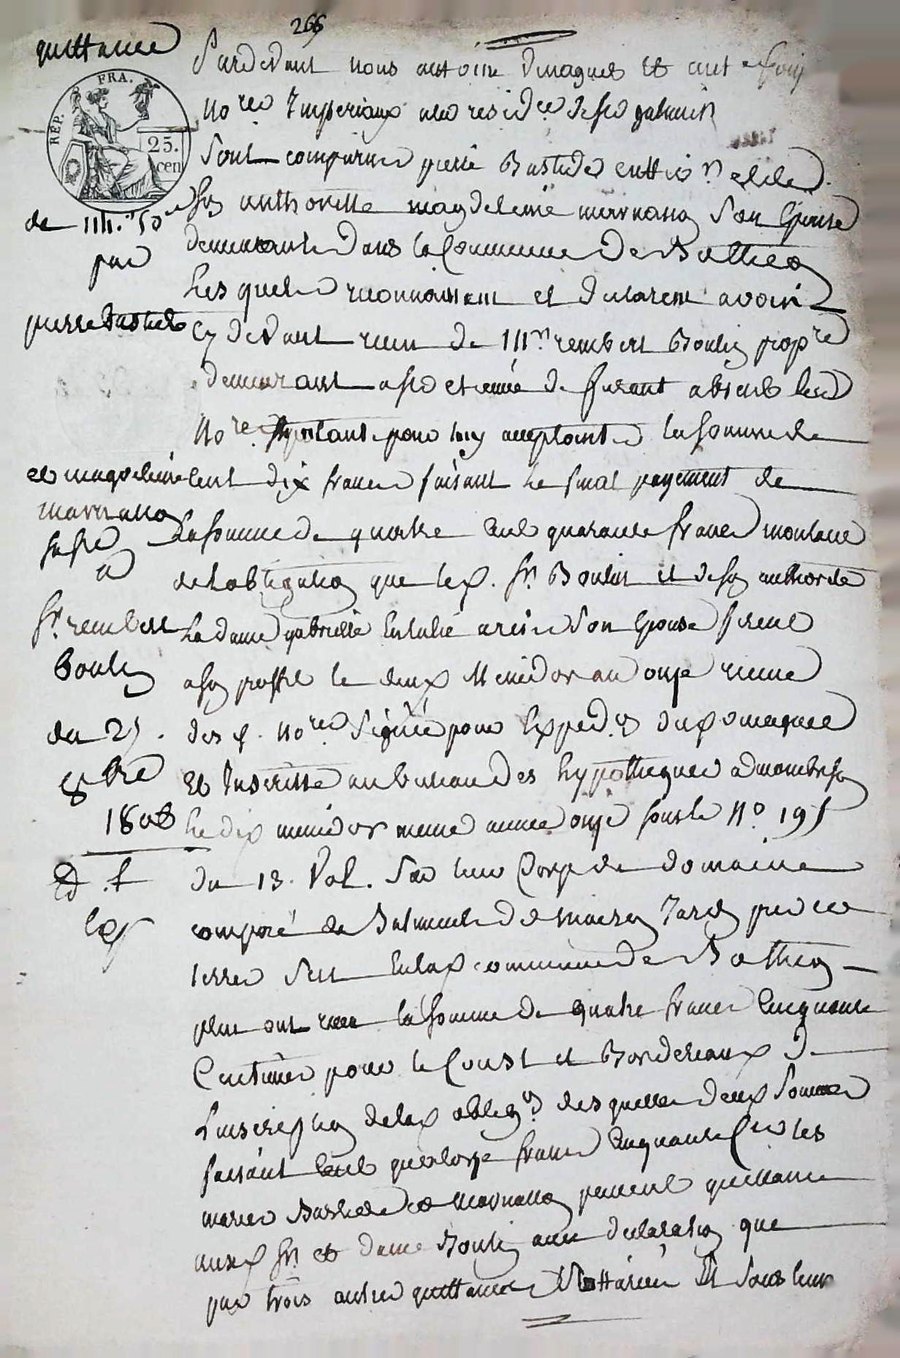 266
quittance
RÉP. FRA.
25.
cen
de 114.f 50c
par
pierre Bastide
et magdeleine
marnassa
sa fe
a
Sr. rembert
Boulin
du 25.
8bre
1808
Pardevant nous antoine Dmagnes et
Nores Imperiaux a la residce de
sont comparus pierre Bastide et de
sa authoritte magdeleine marnassa son Epouse
demeurants dans la Commune de Bathea
Lesquels reconnoissent et declarent avoir
Cy devant recu de Mr. rembert Boulin propre
demeurant a et de present absent led
Nore stipulant pour luy acceptant la somme de
Cent dix francs faisant le final payement de
La somme de quatre Cent quarante francs montant
de Lobligation que le d. Sr. Boulin et de sa authorité
La dame gabrielle Eulalie son Epouse firent
a son proffit le deux Messidor an onze recue
des d. Nores Signée pour Expedon dud Dmagnes
Et Inscritte au bureau des hypotheques a
Le dix messidor meme année onze sous le No. 195
du 13. Vol. Sur leur Corps de domaine
composé de Batiments de maison Jardin pred et
terres situé en lad. commune de Bathea
plus ont recu la somme de quatre francs Cinquante
Centimes pour le Coust et Bordereaux de
Linscription de lad. obligon desquelles deux Sommes
faisant Cent quatorze francs Cinquante Cmes les
mariés Bastide et Marnassa passent quittance
auxd. Sr. et dame Boulin avec declaration que
par trois autres quittances Nottariées Et sous leur